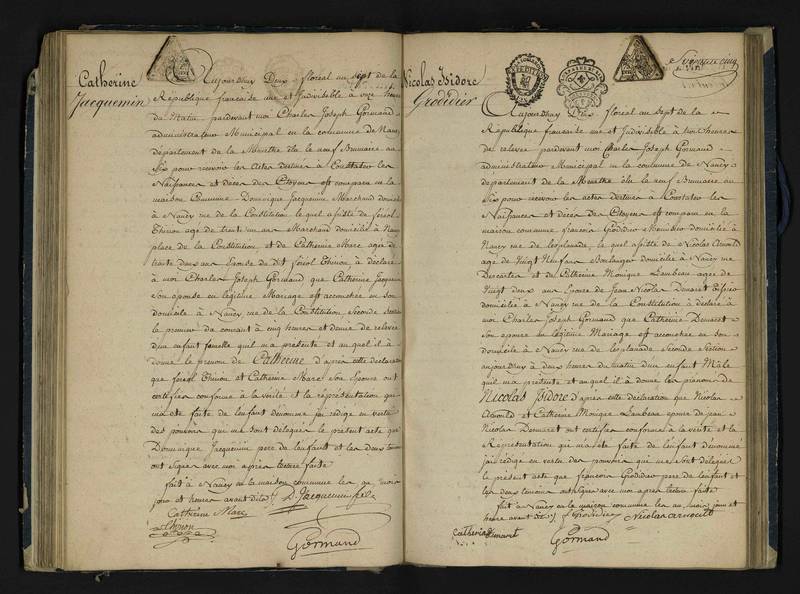 Catherine
Jacquemin
Aujourdhuy Deux floréal an Sept de la
République française une et Indivisible à onze heures
du Matin pardevant moi Charles Joseph Gormand
administrateur Municipal en la commune de Nancy
département de la Meurthe élu le neuf Brumaire an
Six pour recevoir les actes destinés à Constater les
Naissances et décès des Citoyens est comparu en la
maison Commune Dominique Jacquemin Marchand domicilié
à Nancy rue de la Constitution lequel assisté de féréol
Thirion agé de trente un ans Marchand domicilié à Nancy
place de la Constitution et de Catherine Marc agée de
trente deux ans Epouse du dit féréol Thirion à déclaré
à moi Charles Joseph Gormand que Catherine Jacquemin
Son épouse en légitime Mariage est accouchée en son
domicile à Nancy rue de la Constitution Seconde Section
le premier du courant à cinq heures et demie de relevée
d'un enfant femelle qu'il m'a présenté et auquel il à
donné le prenom de Catherine d'après cette déclaration
que féréol Thirion et Catherine Marc Son Epouse ont
certifiée conforme à la vérité et la réprésentation qui
m'a été faite de l'enfant dénommé j'ai rédigé en vertu
des pouvoirs qui me sont délégués le présent acte que
Dominique Jacquemin pere de l'enfant et les deux temoins
ont signés avec moi après lecture faite
fait à Nancy en la maison commune les an, mois
jour et heures avant dits D. Jacquemin fils
Catherine Marc
Thirion
Gormand
Nicolas Isidore
Grodidier
Aujourdhuy Deux floréal an Sept de la
République française une et Indivisible à heures
de relevée pardevant moi Charles Joseph Gormand
administrateur Municipal en la commune de Nancy
département de la Meurthe élu le neuf Brumaire an
Six pour recevoir les actes destinés à Constater les
Naissances et décès des Citoyens est comparu en la
maison commune françois Grodidier Menuisier domicilié à
Nancy rue de lesplanade, lequel assisté de Nicolas Arnould
agé de Vingt Neuf ans Boulanger domicilié à Nancy rue
Descartes et de Catherine Monique Lambeau agée de
Vingt deux ans Epouse de Jean Nicolas Demaret
domiciliée à Nancy rue de la Constitution à déclaré à
moi Charles Joseph Gormand que Catherine Demaret
Son épouse en légitime Mariage est accouchée en son
domicile à Nancy rue de lesplanade Seconde Section
aujourdhuy à deux heures du matin d'un enfant Mâle
qu'il m'a présenté et auquel il à donné les prénoms de
Nicolas Isidore d'après cette déclaration que Nicolas
Arnould et Catherine Monique Lambeau épouse de Jean
Nicolas Demaret ont certifiée conforme à la vérité et la
Réprésentation qui m'a été faite de l'enfant dénommé
j'ai rédigé en vertu des pouvoirs qui me sont délégués
le présent acte que françois Grodidier pere de l'enfant et
les deux temoins ont signés avec moi après lecture faite
fait à Nancy en la maison commune les an, mois, jour et
heure avant dits f. Grodidier Nicolas arnould
Catherine Demaret
Gormand